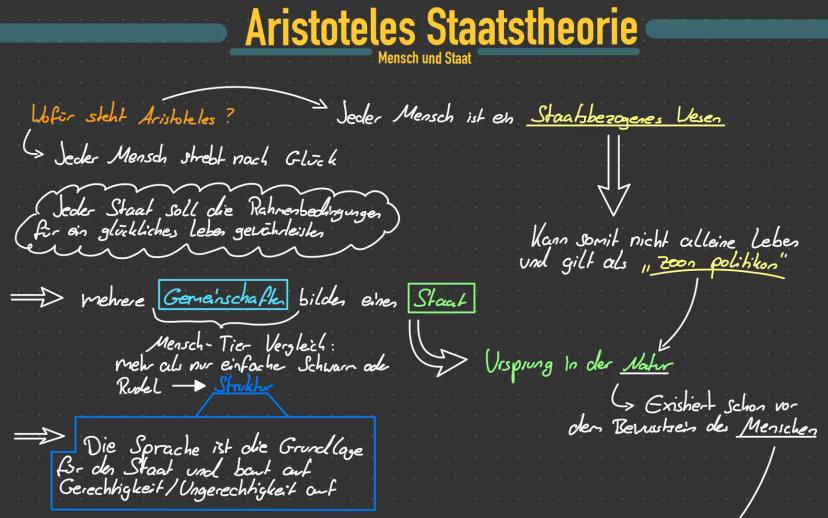 Aristoteles Staatstheorie
Mensch und Staat
Wofür steht Aristoteles?
Jeder Mensch ist ein Staatsbezogenes Wesen
Jeder Mensch strebt nach Glück
Jeder Staat soll die Rahmenbedingungen
für ein glückliches Leben gewährleisten
Kann somit nicht alleine Leben
und gilt als „zoon politikon“
mehrere Gemeinschaften bilden einen Staat
Mensch-Tier Vergleich:
mehr als nur einfacher Schwarm oder
Rudel → Struktur
Ursprung in der Natur
Existiert schon vor
dem Bewusstsein des Menschen
Die Sprache ist die Grundlage
für den Staat und baut auf
Gerechtigkeit/Ungerechtigkeit auf